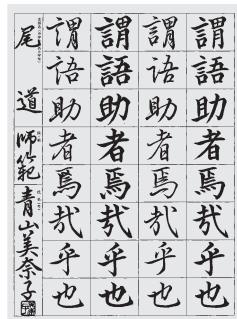 謂語助者焉哉乎也
謂語助者焉哉乎也
謂語助者焉哉乎也
謂語助者焉哉乎也
尾道 師範 青山美奈子